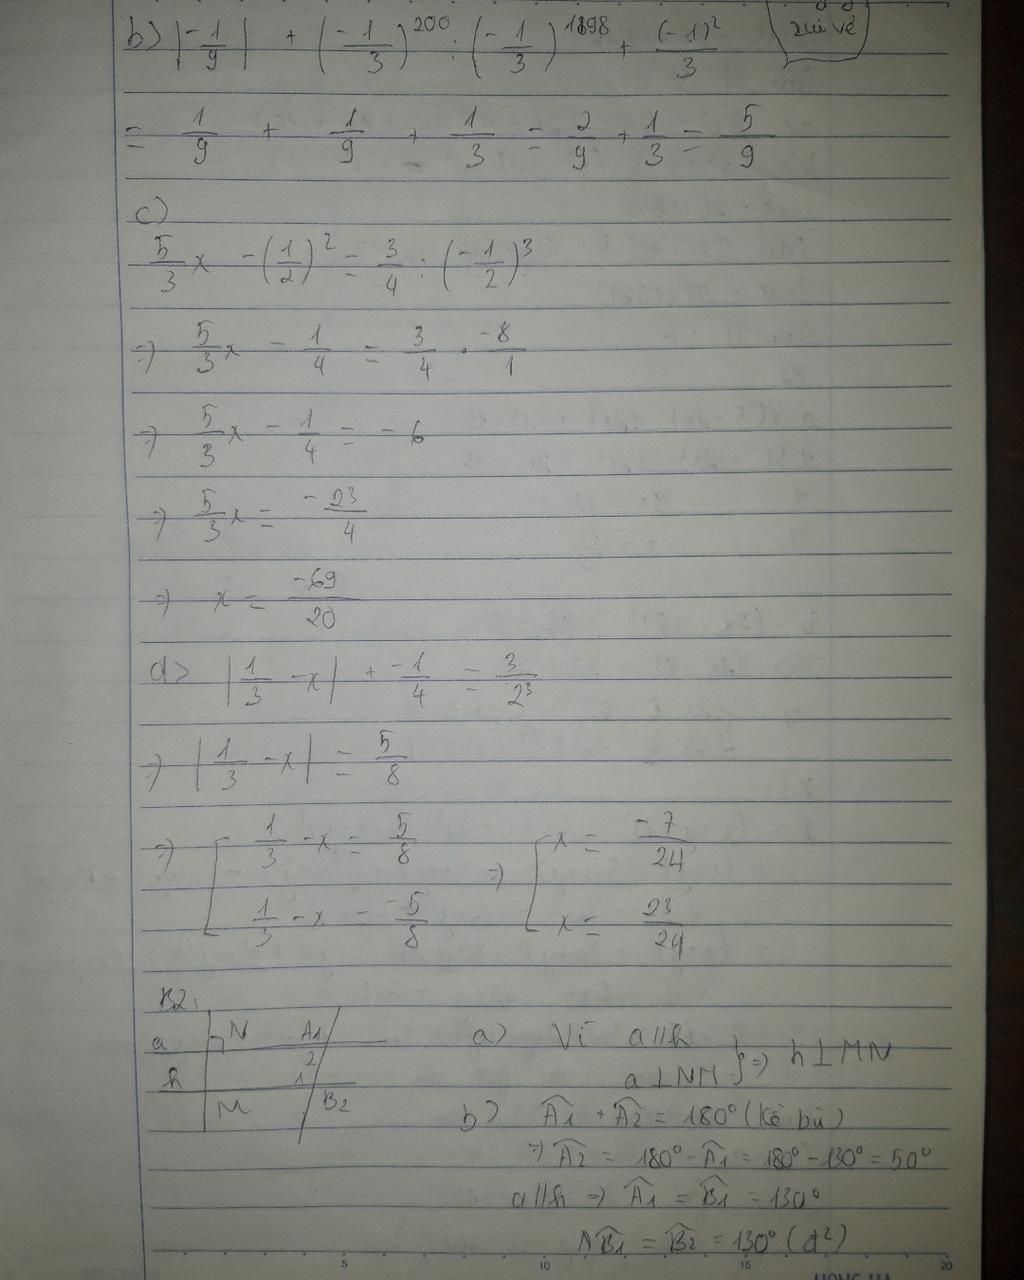 b) |-1/9| + (-1/3)^200 : (-1/3)^1898 + (-1)²/3
xui vẻ
= 1/9 + 1/9 + 1/3 = 2/9 + 1/3 = 5/9
c)
5/3 x - (1/2)² = 3/4 : (-1/2)³
=> 5/3 x - 1/4 = 3/4 . -8/1
=> 5/3 x - 1/4 = -6
=> 5/3 x = -23/4
=> x = -69/20
d> |1/3 - x| + -1/4 = 3/2³
=> |1/3 - x| = 5/8
=> [ 1/3 - x = 5/8 => [ x = -7/24
1/3 - x = -5/8 x = 23/24
B2,
a N A1
2
h 1
M B2
a) Vì a//h
a ⊥ NM } => h ⊥ MN
b) Â1 + Â2 = 180° (Kề bù)
=> Â2 = 180° - Â1 = 180° - 130° = 50°
a//h => Â1 = B̂1 = 130°
B̂1 = B̂2 = 130° (đ²)
5 10 15 20